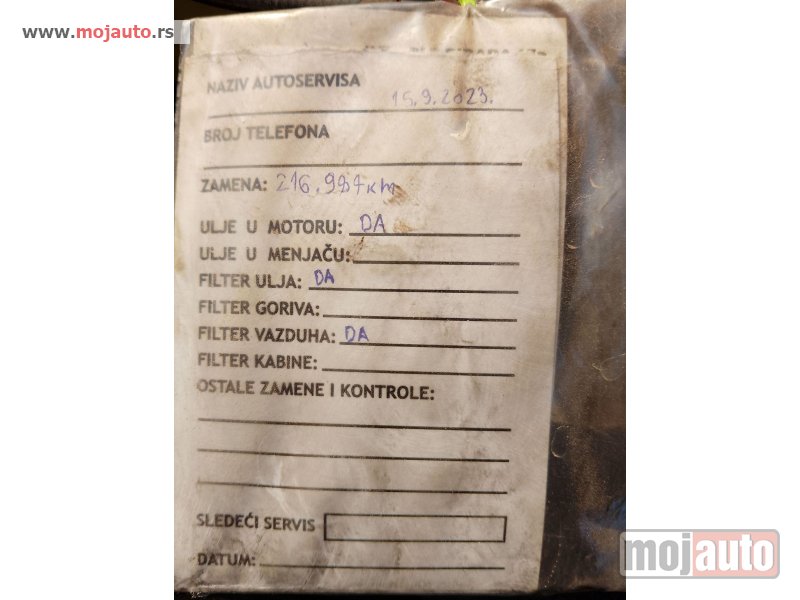 www.mojauto.rs
NAZIV AUTOSERVISA
15.9.2023.
BROJ TELEFONA
ZAMENA: 216.987км
ULJE U MOTORU: DA
ULJE U MENJAČU:
FILTER ULJA: DA
FILTER GORIVA:
FILTER VAZDUHA: DA
FILTER KABINE:
OSTALE ZAMENE I KONTROLE:
SLEDEĆI SERVIS
DATUM:
mojauto